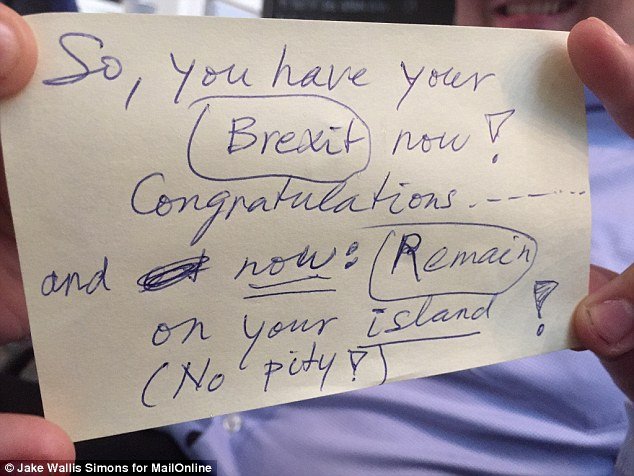 So, you have your
Brexit now!
Congratulations.------
and now: Remain
on your island !
(No pity!)
© Jake Wallis Simons for MailOnline